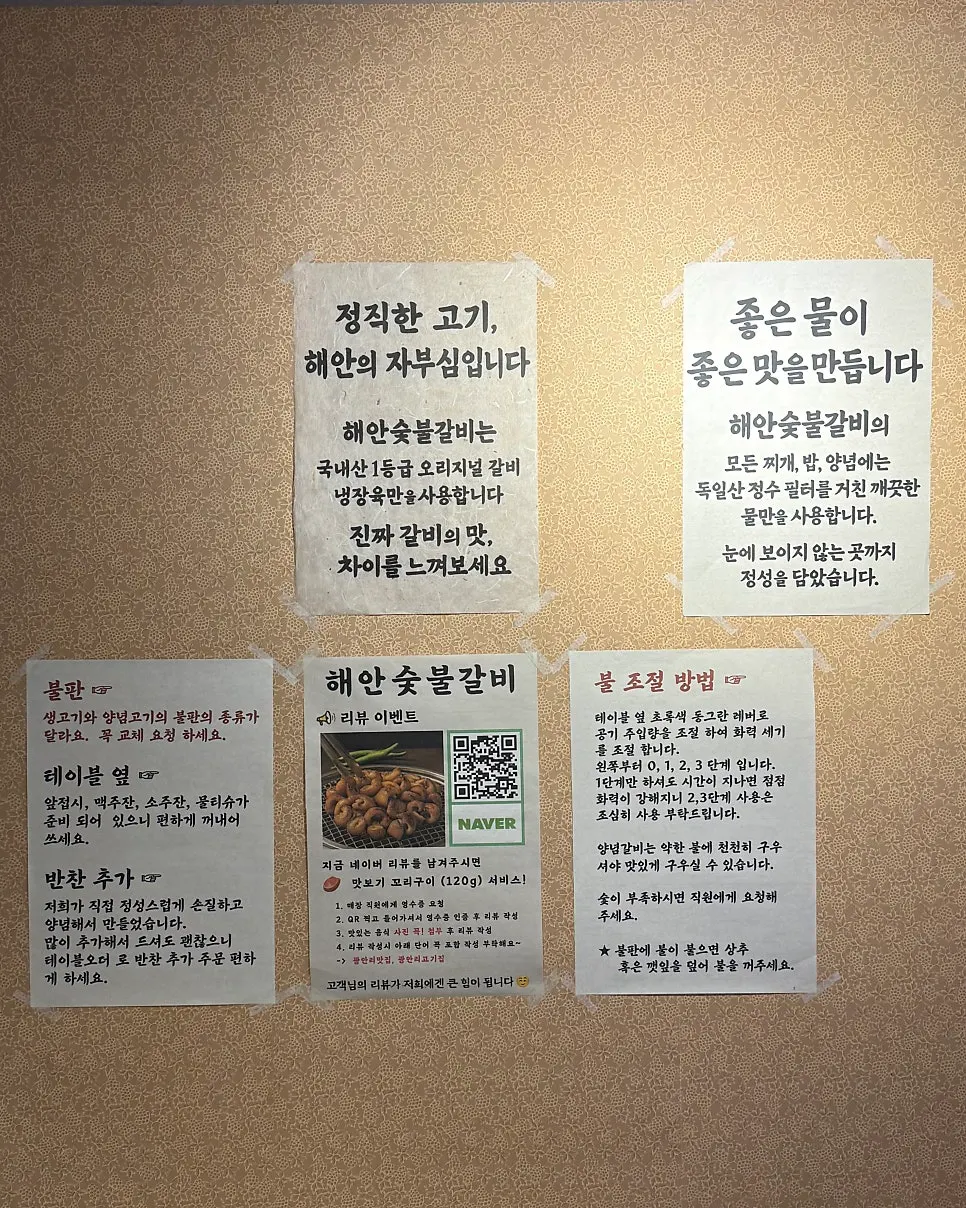 정직한 고기,
해안의 자부심입니다
해안숯불갈비는
국내산 1등급 오리지널 갈비
냉장육만을사용합니다
진짜 갈비의 맛,
차이를 느껴보세요
좋은 물이
좋은 맛을 만듭니다
해안숯불갈비의
모든 찌개, 밥, 양념에는
독일산 정수 필터를 거친 깨끗한
물만을 사용합니다.
눈에 보이지 않는 곳까지
정성을 담았습니다.
불판 ☞
생고기와 양념고기의 불판의 종류가
달라요. 꼭 교체 요청 하세요.
테이블 옆 ☞
앞접시, 맥주잔, 소주잔, 물티슈가
준비 되어 있으니 편하게 꺼내어
쓰세요.
반찬 추가 ☞
저희가 직접 정성스럽게 손질하고
양념해서 만들었습니다.
많이 추가해서 드셔도 괜찮으니
테이블오더 로 반찬 추가 주문 편하
게 하세요.
해안숯불갈비
📢 리뷰 이벤트
NAVER
지금 네이버 리뷰를 남겨주시면
🥩 맛보기 꼬리구이 (120g) 서비스!
1. 매장 직원에게 영수증 요청
2. QR 찍고 들어가셔서 영수증 인증 후 리뷰 작성
3. 맛있는 음식 사진 꼭! 첨부 후 리뷰 작성
4. 리뷰 작성시 아래 단어 꼭 포함 작성 부탁해요~
-> 광안리맛집, 광안리고기집
고객님의 리뷰가 저희에겐 큰 힘이 됩니다 😊
불 조절 방법 ☞
테이블 옆 초록색 동그란 레버로
공기 주입량을 조절 하여 화력 세기
를 조절 합니다.
왼쪽부터 0, 1, 2, 3 단계 입니다.
1단계만 하셔도 시간이 지나면 점점
화력이 강해지니 2,3단계 사용은
조심히 사용 부탁드립니다.
양념갈비는 약한 불에 천천히 구우
셔야 맛있게 구우실 수 있습니다.
숯이 부족하시면 직원에게 요청해
주세요.
★ 불판에 불이 붙으면 상추
혹은 깻잎을 덮어 불을 꺼주세요.